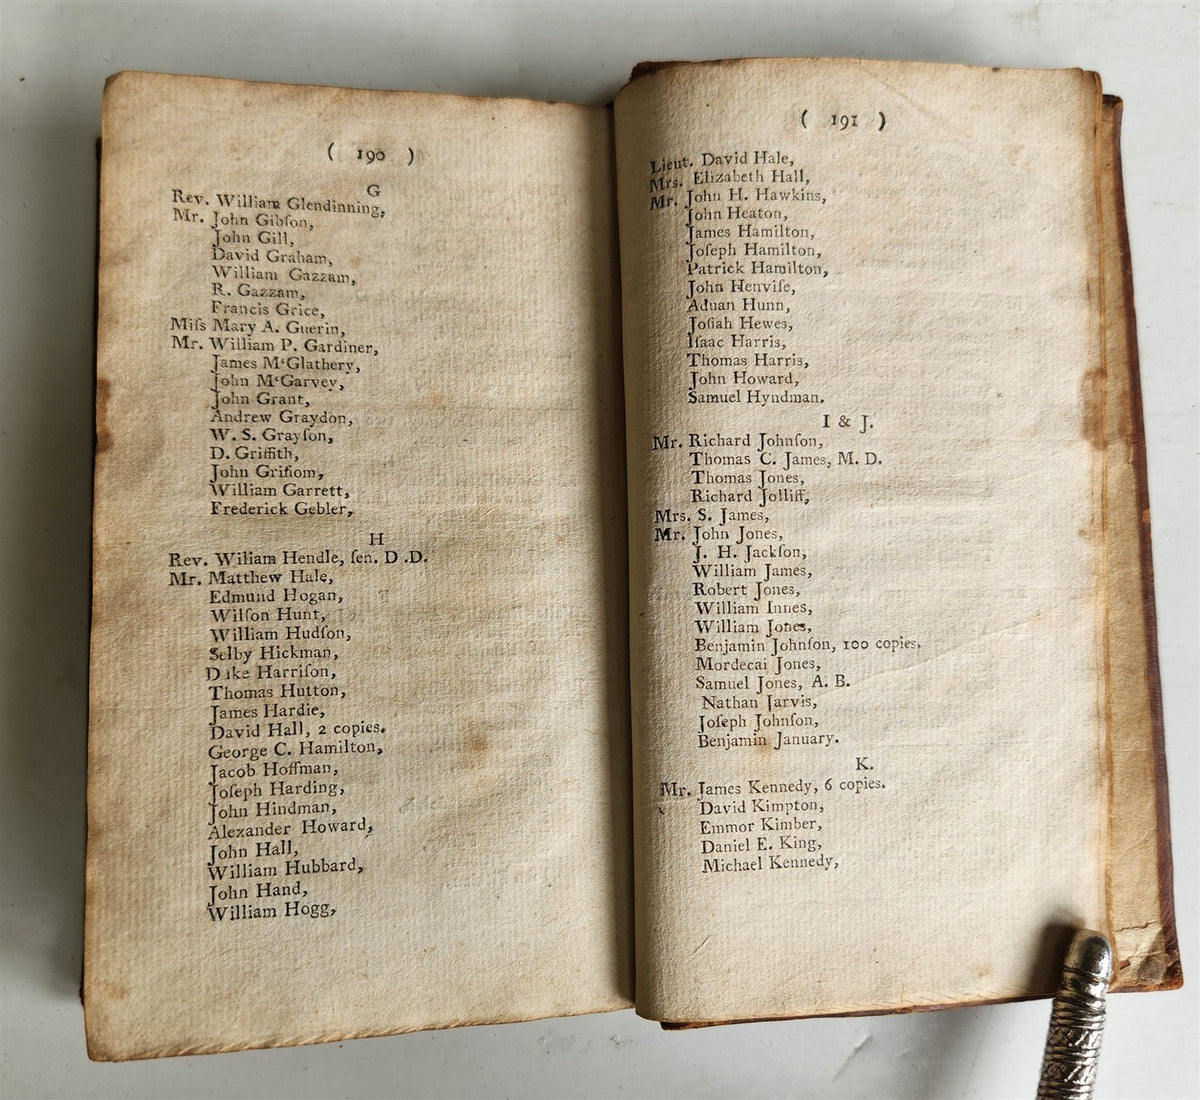 ( 190 )
G
Rev. William Glendinning,
Mr. John Gibſon,
John Gill,
David Graham,
William Gazzam,
R. Gazzam,
Francis Grice,
Miſs Mary A. Guerin,
Mr. William P. Gardiner,
James M‘Glathery,
John M‘Garvey,
John Grant,
Andrew Graydon,
W. S. Grayſon,
D. Griffith,
John Griſiom,
William Garrett,
Frederick Gebler,
H
Rev. Wiliam Hendle, ſen. D .D.
Mr. Matthew Hale,
Edmund Hogan,
Wilſon Hunt,
William Hudſon,
Selby Hickman,
D ke Harriſon,
Thomas Hutton,
James Hardie,
David Hall, 2 copies.
George C. Hamilton,
Jacob Hoffman,
Joſeph Harding,
John Hindman,
Alexander Howard,
John Hall,
William Hubbard,
John Hand,
William Hogg,
( 191 )
Lieut. David Hale,
Mrs. Elizabeth Hall,
Mr. John H. Hawkins,
John Heaton,
James Hamilton,
Joſeph Hamilton,
Patrick Hamilton,
John Henviſe,
Aduan Hunn,
Joſiah Hewes,
Iſaac Harris,
Thomas Harris,
John Howard,
Samuel Hyndman.
I & J.
Mr. Richard Johnſon,
Thomas C. James, M. D.
Thomas Jones,
Richard Jolliff,
Mrs. S. James,
Mr. John Jones,
J. H. Jackſon,
William James,
Robert Jones,
William Innes,
William Jones,
Benjamin Johnſon, 100 copies.
Mordecai Jones,
Samuel Jones, A. B.
Nathan Jarvis,
Joſeph Johnſon,
Benjamin January.
K.
Mr. James Kennedy, 6 copies.
David Kimpton,
Emmor Kimber,
Daniel E. King,
Michael Kennedy,